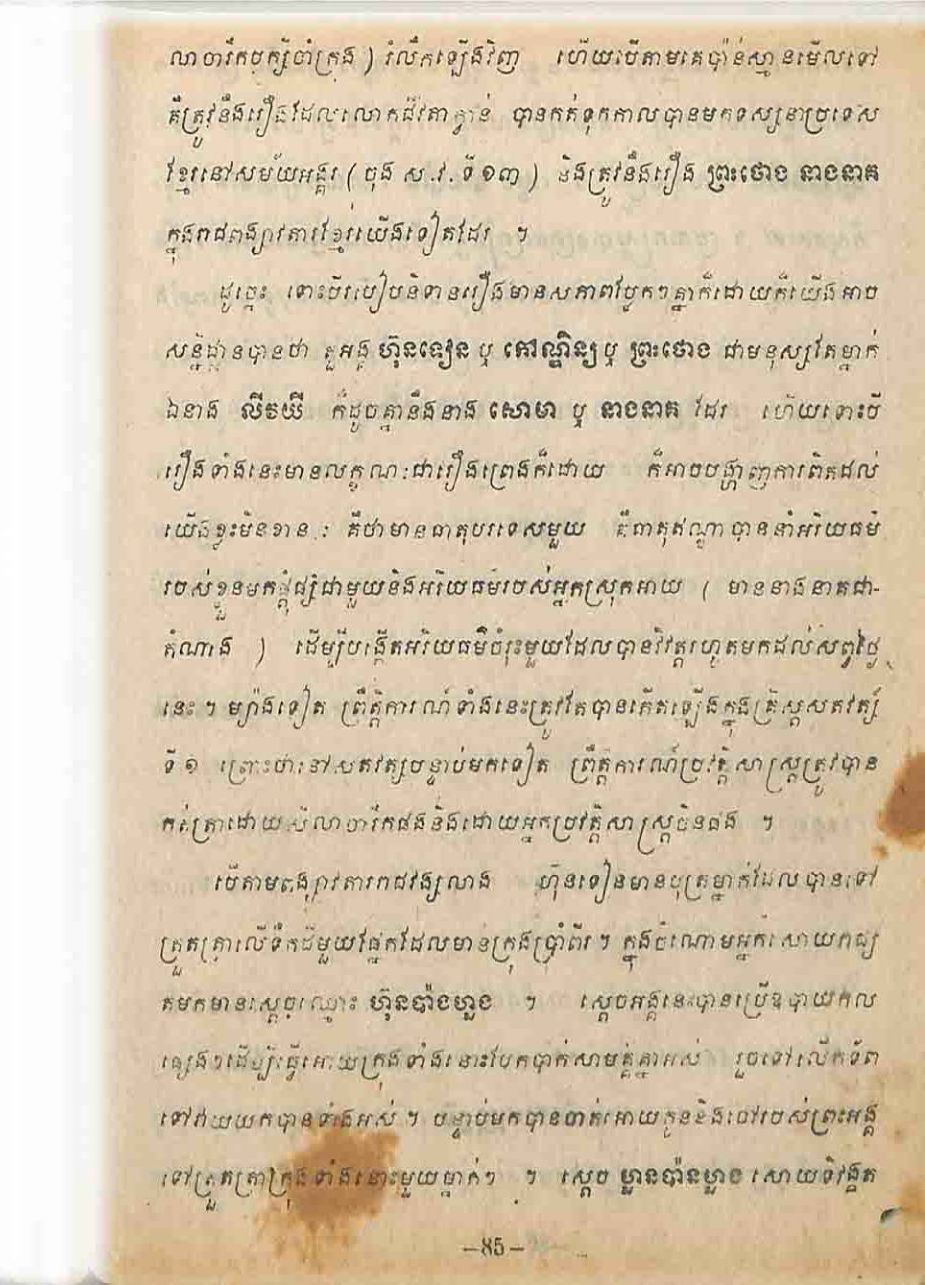 លាចារឹកបុក្សីចាំក្រុង ) រំលឹកឡើងវិញ ហើយបើតាមគេប៉ាន់ស្មានមើលទៅ
គឺត្រូវនឹងរឿងដែលលោកជីវតាក្វាន់ បានកត់ទុកកាលបានមកទស្សនាប្រទេស
ខ្មែរនៅសម័យអង្គរ ( ចុង ស.វ. ទី ១៣ ) និងត្រូវនឹងរឿង ព្រះថោង នាងនាគ
ក្នុងរាជពង្សាវតារខ្មែរយើងទៀតដែរ ។
ដូច្នេះ ទោះបីរបៀបនិទានរឿងមានសភាពប្លែកៗគ្នាក៏ដោយក៏យើងអាច
សន្និដ្ឋានបានថា តួអង្គ ហ៊ុនទៀន ឬ កៅណ្ឌិន្យ ឬ ព្រះថោង ជាមនុស្សតែម្នាក់
ឯនាង លីវយី ក៏ដូចគ្នានឹងនាង សោមា ឬ នាងនាគ ដែរ ហើយទោះបី
រឿងទាំងនេះមានលក្ខណៈជារឿងព្រេងក៏ដោយ ក៏អាចបង្ហាញការពិតដល់
យើងខ្លះមិនខាន : គឺថាមានធាតុបរទេសមួយ គឺធាតុឥណ្ឌាបាននាំអរិយធម៌
របស់ខ្លួនមកផ្គុំផ្សំជាមួយនិងអរិយធម៌របស់អ្នកស្រុកអាយ ( មាននាងនាគជា-
តំណាង ) ដើម្បីបង្កើតអរិយធម៌ចំរុះមួយដែលបានវិវត្តរហូតមកដល់សព្វថ្ងៃ
នេះ ។ ម្យ៉ាងទៀត ព្រឹត្តិការណ៍ទាំងនេះត្រូវតែបានកើតឡើងក្នុងគ្រិស្តសតវត្ស៍
ទី ១ ព្រោះថានៅសតវត្សបន្ទាប់មកទៀត ព្រឹត្តិការណ៍ប្រវត្តិសាស្ត្រត្រូវបាន
កត់ត្រាដោយសិលាចារឹកផងនិងដោយអ្នកប្រវត្តិសាស្ត្រចិនផង ។
បើតាមពង្សាវតាររាជវង្សលាង ហ៊ុនទៀនមានបុត្រម្នាក់ដែលបានទៅ
ត្រួតត្រាលើទឹកដីមួយផ្នែកដែលមានក្រុងប្រាំពីរ ។ ក្នុងចំណោមអ្នកសោយរាជ្យ
តមកមានស្តេចឈ្មោះ ហ៊ុនប៉ាងហួង ។ ស្តេចអង្គនេះបានប្រើឧបាយកល
ផ្សេងៗដើម្បីធ្វើអោយក្រុងទាំងនោះបែកបាក់សាមគ្គីគ្នាអស់ រួចទៅលើកទ័ព
ទៅវាយយកបានទាំងអស់ ។ បន្ទាប់មកបានចាត់អោយកូននិងចៅរបស់ព្រះអង្គ
ទៅត្រួតត្រាក្រុងទាំងនោះមួយម្នាក់ៗ ។ ស្តេច ហ្វានប៉ានហ្វាង សោយទិវង្គត
-85-